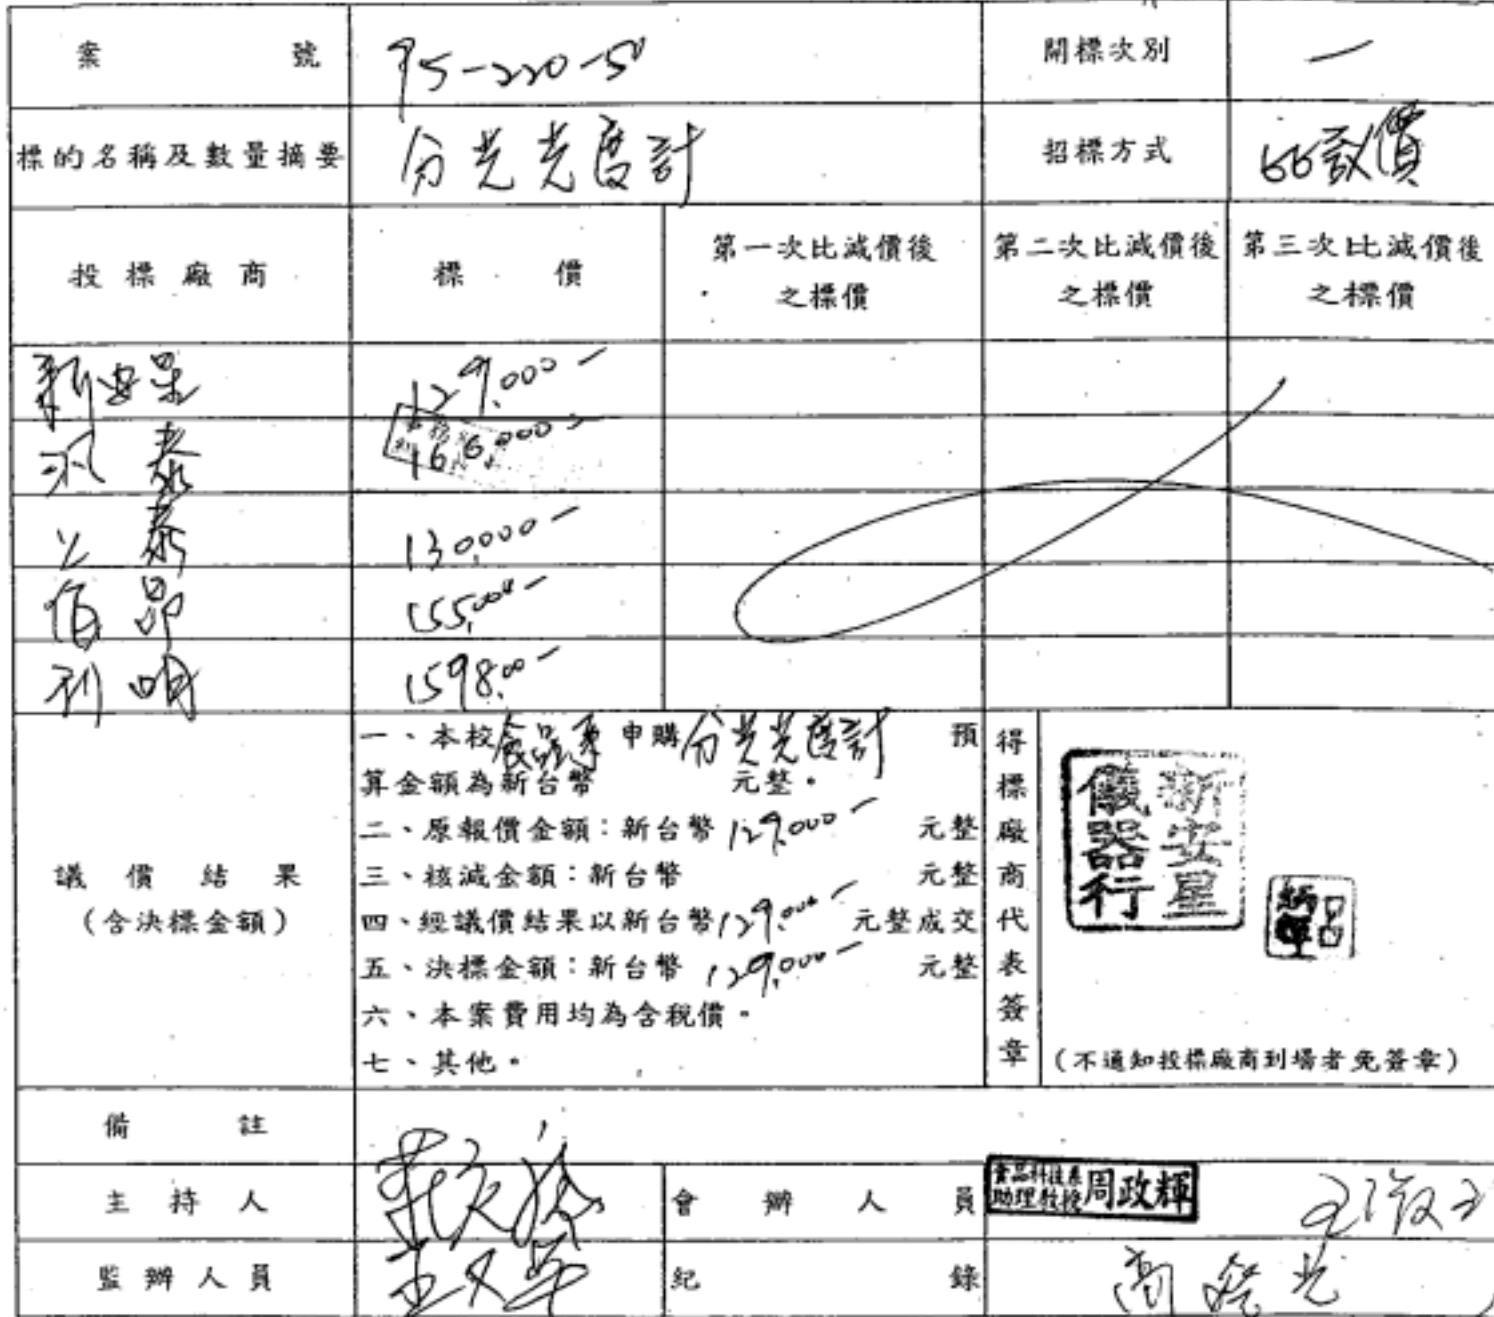 案號 95-220-5 開標次別 一
標的名稱及數量摘要 分光光度計 招標方式 比議價
投標廠商 標價 第一次比減價後之標價 第二次比減價後之標價 第三次比減價後之標價
新安星 129,000-
汎泰 166,000-
泰 130,000-
佰昂 155,000-
利明 159800-
議價結果
(含決標金額)
一、本校食品系申購分光光度計 預
算金額為新台幣 元整。
二、原報價金額：新台幣 129,000- 元整
三、核減金額：新台幣 元整
四、經議價結果以新台幣 129,000- 元整成交
五、決標金額：新台幣 129,000- 元整
六、本案費用均為含稅價。
七、其他。
得標廠商代表簽章
新安星
儀器行
(不通知投標廠商到場者免簽章)
備註
主持人 會辦人員
食品科技系
助理教授 周政輝
監辦人員 紀錄